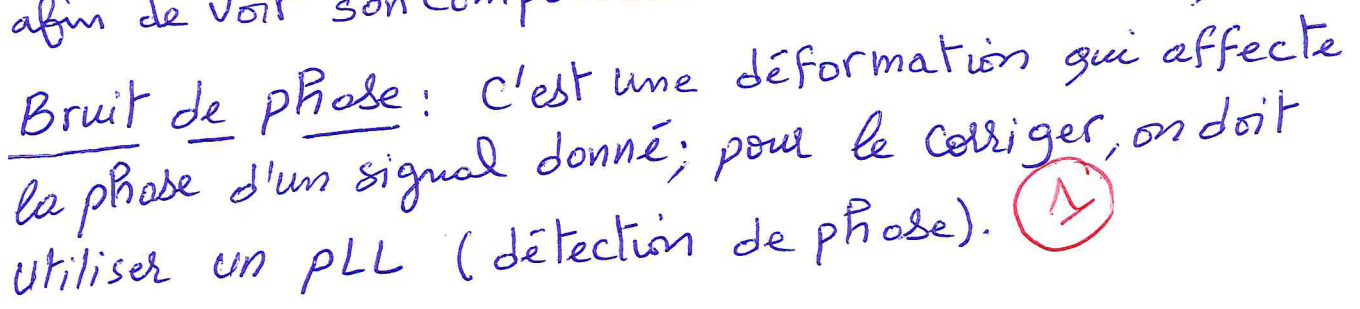 afin de voir son
Bruit de phase : c'est une déformation qui affecte
la phase d'un signal donné ; pour le corriger, on doit
utiliser un pLL (détection de phase). 1